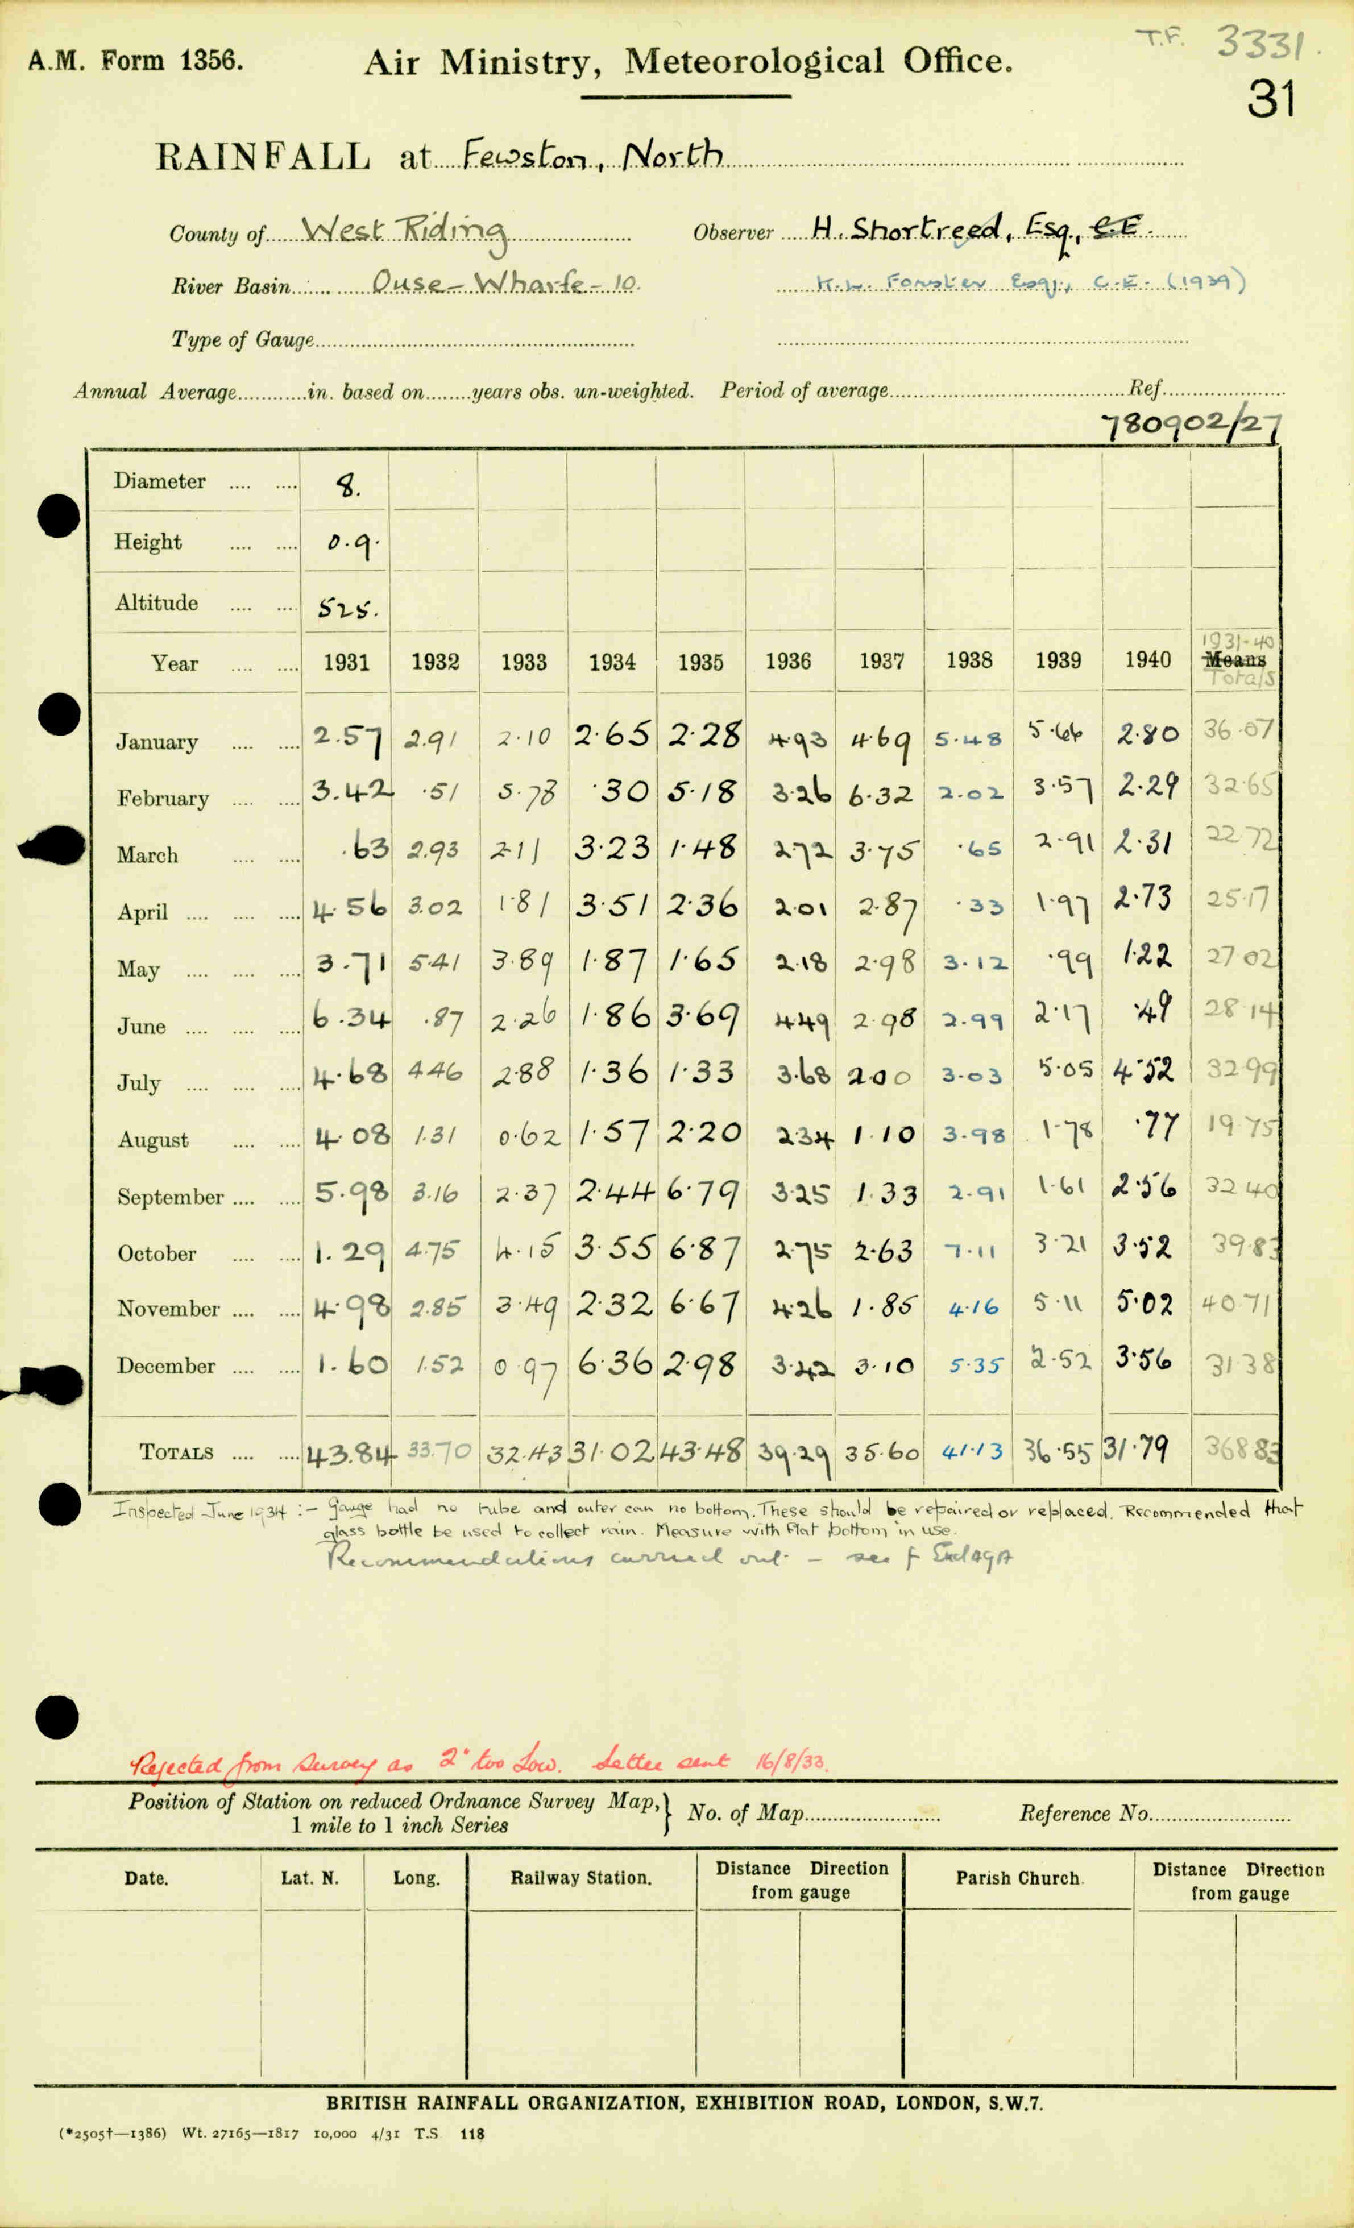 T.F. 3331.
A.M. Form 1356. Air Ministry, Meteorological Office.
31
RAINFALL at Fewston, North
County of West Riding Observer H. Shortreed, Esq., C.E.
River Basin Ouse - Wharfe - 10. K.L. Forster Esq., C.E. (1939)
Type of Gauge
Annual Average in. based on years obs. un-weighted. Period of average Ref.
780902/27
Diameter 8.
Height 0.9.
Altitude 525.
1931-40
Year 1931 1932 1933 1934 1935 1936 1937 1938 1939 1940 Means
Totals
January 2.57 2.91 2.10 2.65 2.28 4.93 4.69 5.48 5.66 2.80 36.07
February 3.42 .51 5.78 .30 5.18 3.26 6.32 2.02 3.57 2.29 32.65
March .63 2.93 2.11 3.23 1.48 2.72 3.75 .65 2.91 2.31 22.72
April 4.56 3.02 1.81 3.51 2.36 2.01 2.87 .33 1.97 2.73 25.17
May 3.71 5.41 3.89 1.87 1.65 2.18 2.98 3.12 .99 1.22 27.02
June 6.34 .87 2.26 1.86 3.69 4.49 2.98 2.99 2.17 .49 28.14
July 4.68 4.46 2.88 1.36 1.33 3.68 2.00 3.03 5.05 4.52 32.99
August 4.08 1.31 0.62 1.57 2.20 2.34 1.10 3.98 1.78 .77 19.75
September 5.98 3.16 2.37 2.44 6.79 3.25 1.33 2.91 1.61 2.56 32.40
October 1.29 4.75 4.15 3.55 6.87 2.75 2.63 7.11 3.21 3.52 39.83
November 4.98 2.85 3.49 2.32 6.67 4.26 1.85 4.16 5.11 5.02 40.71
December 1.60 1.52 0.97 6.36 2.98 3.42 3.10 5.35 2.52 3.56 31.38
TOTALS 43.84 33.70 32.43 31.02 43.48 39.29 35.60 41.13 36.55 31.79 368.83
Inspected June 1934 :- Gauge had no tube and outer can no bottom. These should be repaired or replaced. Recommended that
glass bottle be used to collect rain. Measure with flat bottom in use.
Recommendations carried out - see
Rejected from Survey as 2" too Low. Letter sent 16/8/33.
Position of Station on reduced Ordnance Survey Map, } No. of Map Reference No.
1 mile to 1 inch Series
Date. Lat. N. Long. Railway Station. Distance Direction from gauge Parish Church. Distance Direction from gauge
BRITISH RAINFALL ORGANIZATION, EXHIBITION ROAD, LONDON, S.W.7.
(*2505†—1386) Wt. 27165—1817 10,000 4/31 T.S. 118